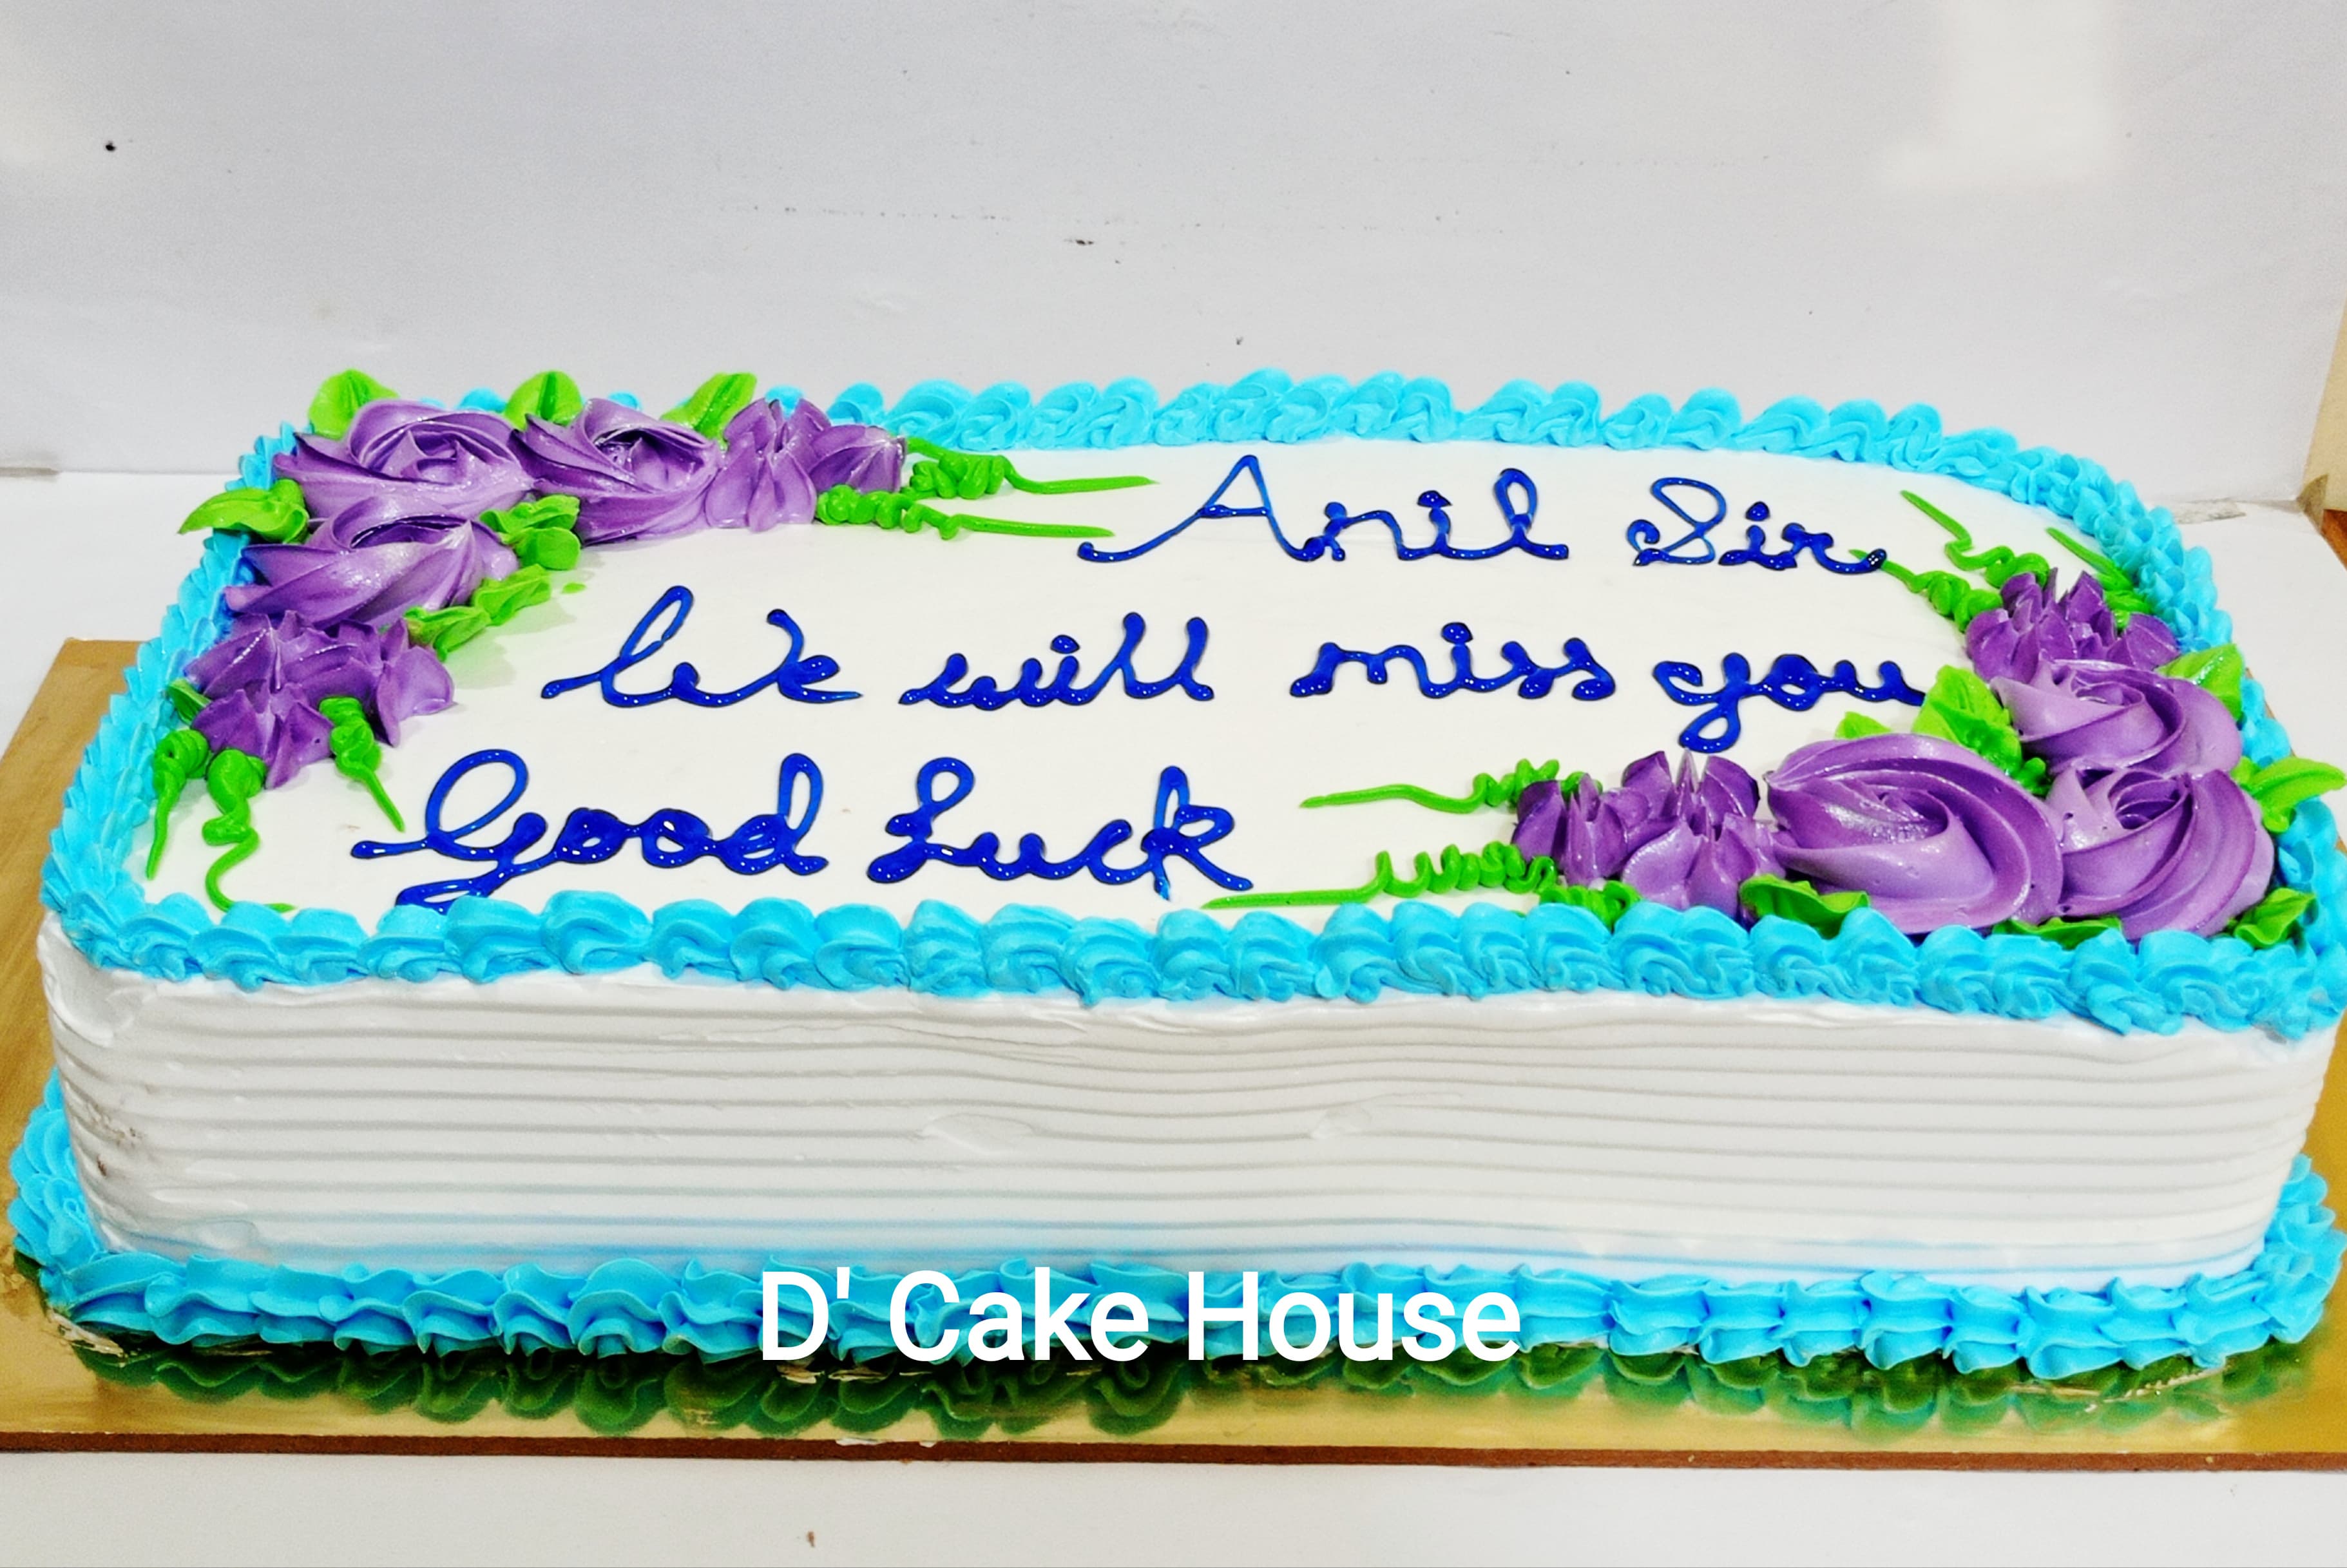 Anil Sir
We will miss you
Good Luck
D' Cake House